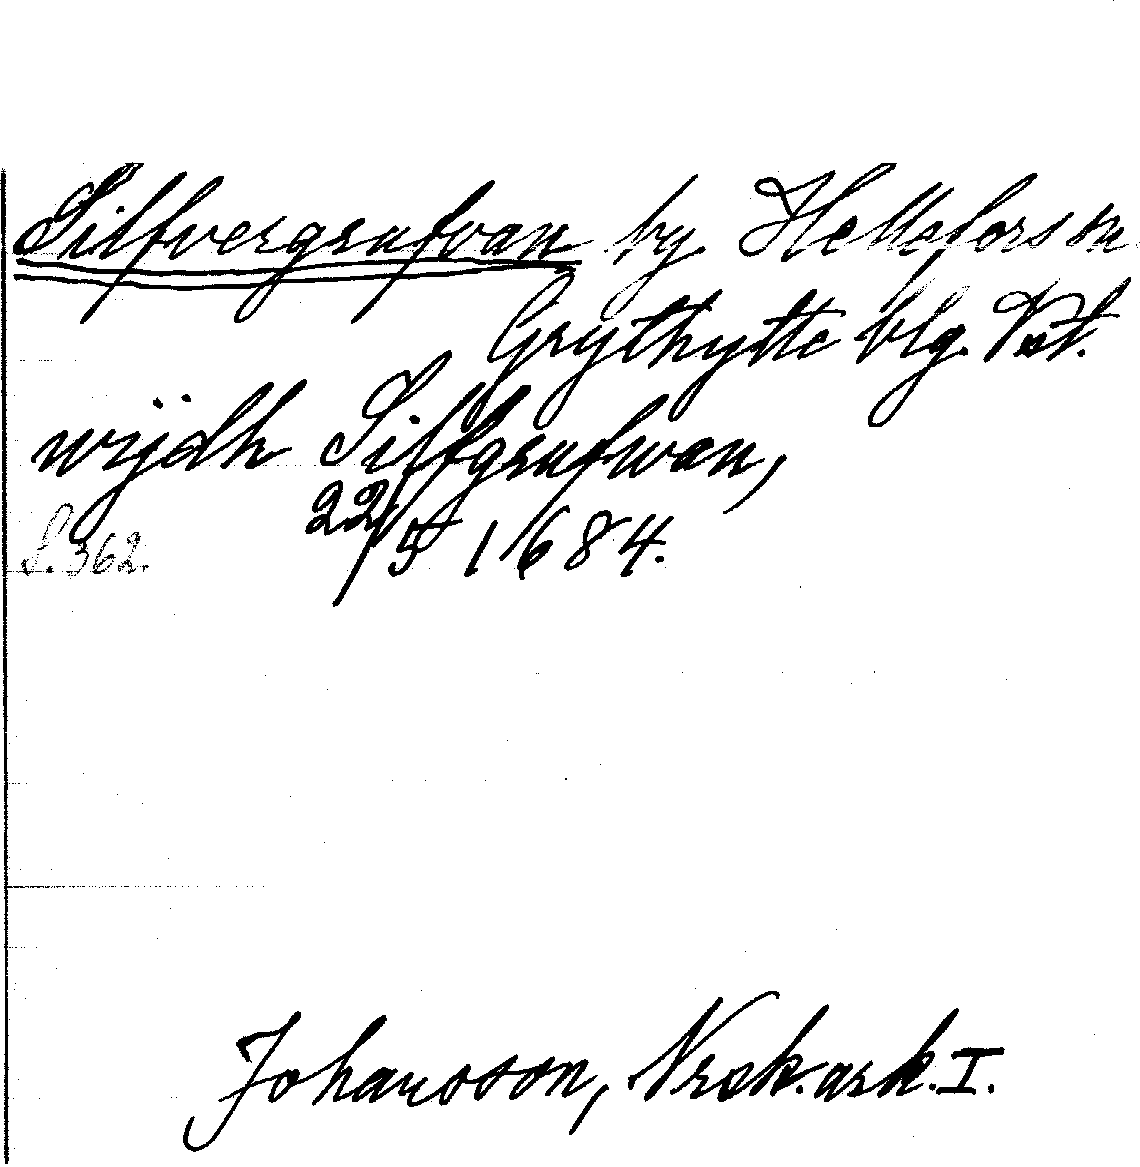 Silfvergrufvan by. Hellefors sn
Grythytte blg. Vstm.
wijdh Silfgrufwan,
S. 362. 22/5 1684.
Johansson, Norsk. ark. I.